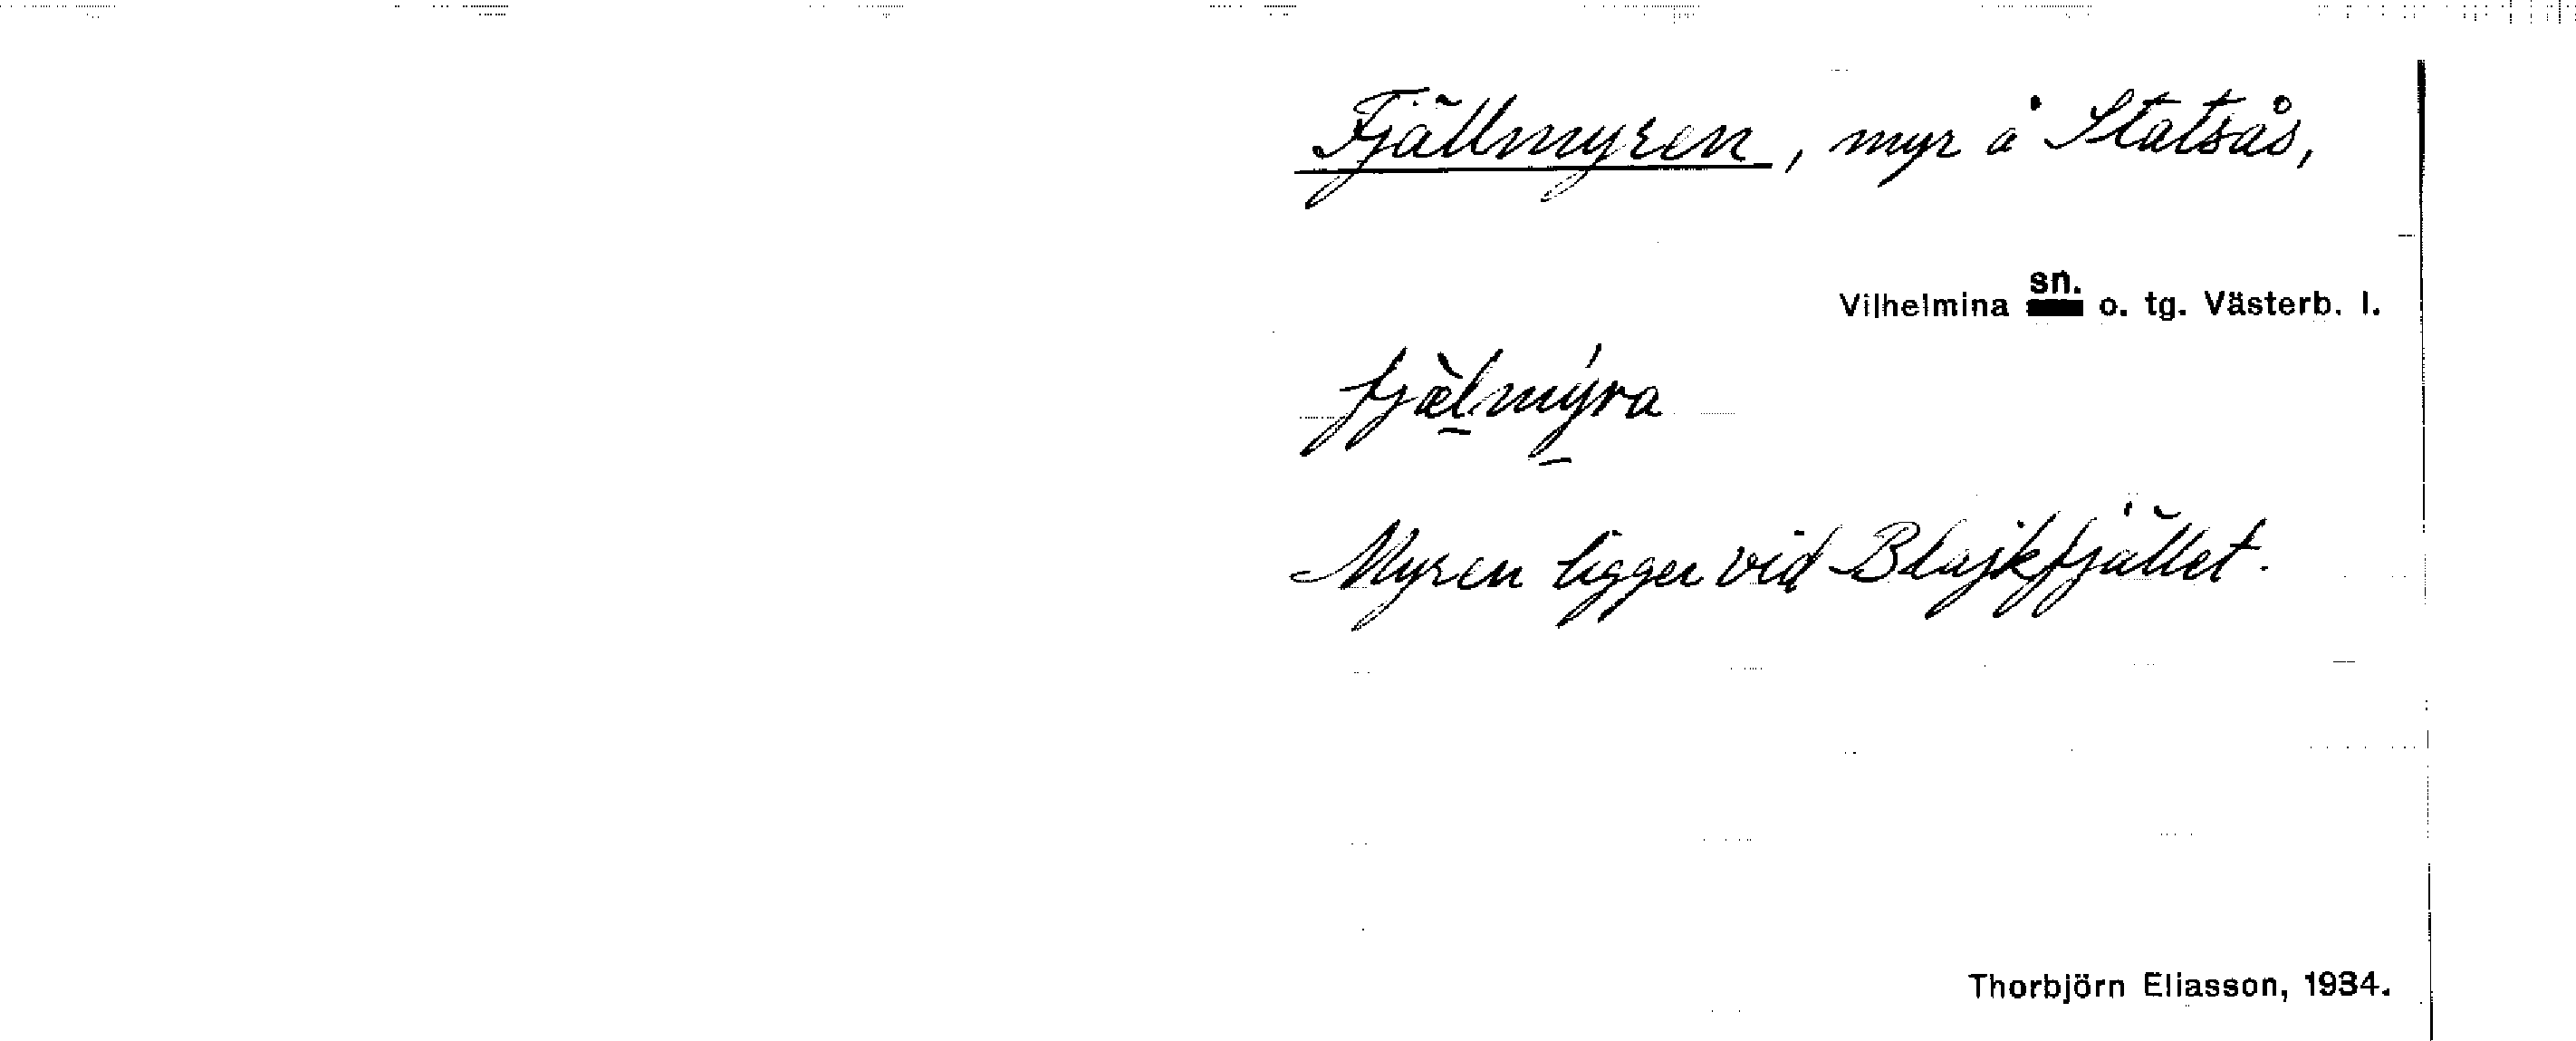 Fjällmyren, myr å Statsås,
Vilhelmina sn. o. tg. Västerb. l.
fjæ̀lmýra
Myren ligger vid Blajkfjället.
Thorbjörn Eliasson, 1934.